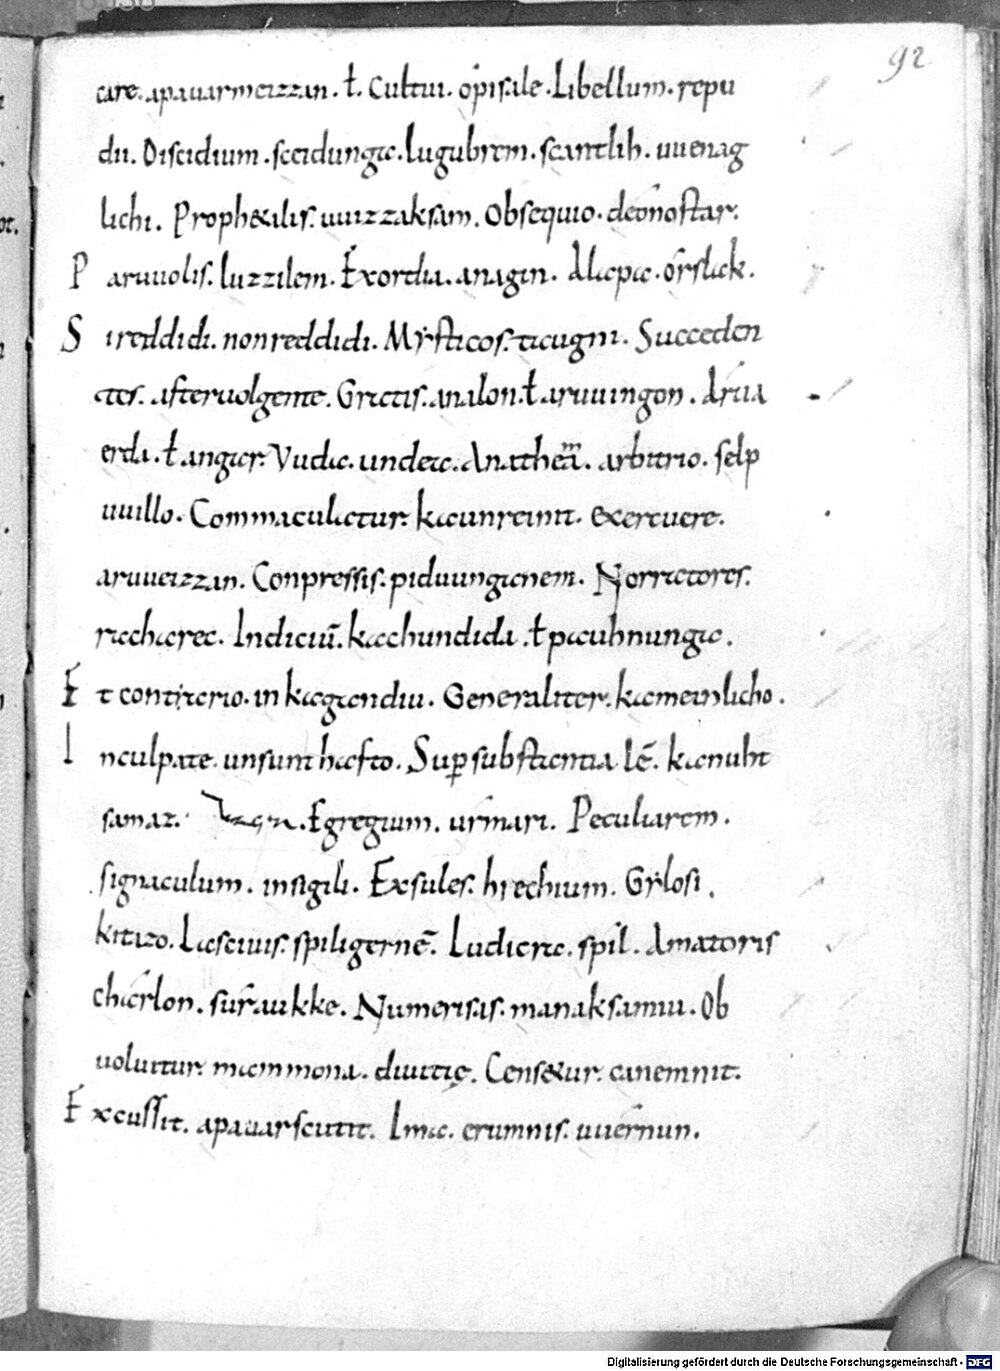 92
care. apauarmeizzan. ł. Cultui. opisale. Libellum. repu
dii. Discidium. sceidungic. lugubrem. scantlih. uuenag
lichi. Prophetilis. uuizzaksam. Obsequio. deonostar.
Paruuolis. luzzilem. Exordia. anagin. Alapa. orslak.
Si reddidi. non reddidi. Mysticos. taugni. Succeden
tes. aftervolgente. Gratis. analon. ł aruuingon. Arua
erda. ł angar. Vuda. undea. Anathema. arbitrio. selp
uuillo. Commaculatur. kaunreinit. exercuere.
aruueizzan. Conpressis. piduungenem. Norrectores.
racharea. Indiciu. kachundida. ł pauhnunga.
Et contrario. in kagandiu. Generaliter. kameinlicho.
Inculpate. unsunthafto. Supersubstantiale. kanuht
samaz. Egregium. urmari. Peculiarem.
signaculum. insigili. Exsules. hrechium. Gylosi.
kitizo. Lasciuis. spiligerne. Ludicra. spil. Amatoris
charlon. surauikke. Numerisas. manaksamiu. Ob
uoluitur. mammona. diuitię. Censetur. canemnit.
Excussit. apauarscutit. Ima. erumnis. uuernun.
Digitalisierung gefördert durch die Deutsche Forschungsgemeinschaft - DFG